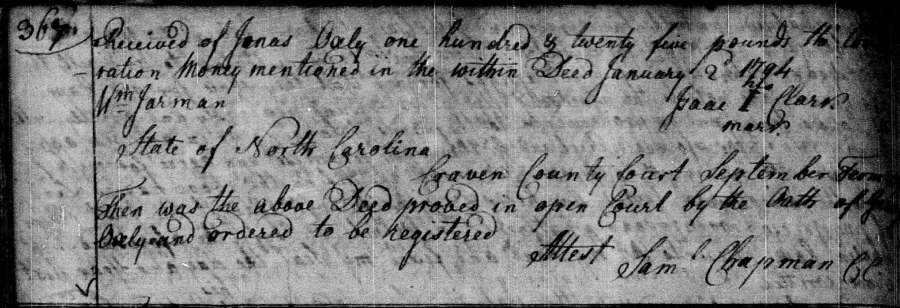 367
Received of Jonas Daly one hundred & twenty five pounds th Con
ration Money mentioned in the within Deed January 2d 1794
Wm Jarman Isaac I Clark
his
mark
State of North Carolina
Craven County Court September Term
Then was the above Deed proved in open Court by the Oath of
Daly and ordered to be registered
Attest Saml Chapman CC